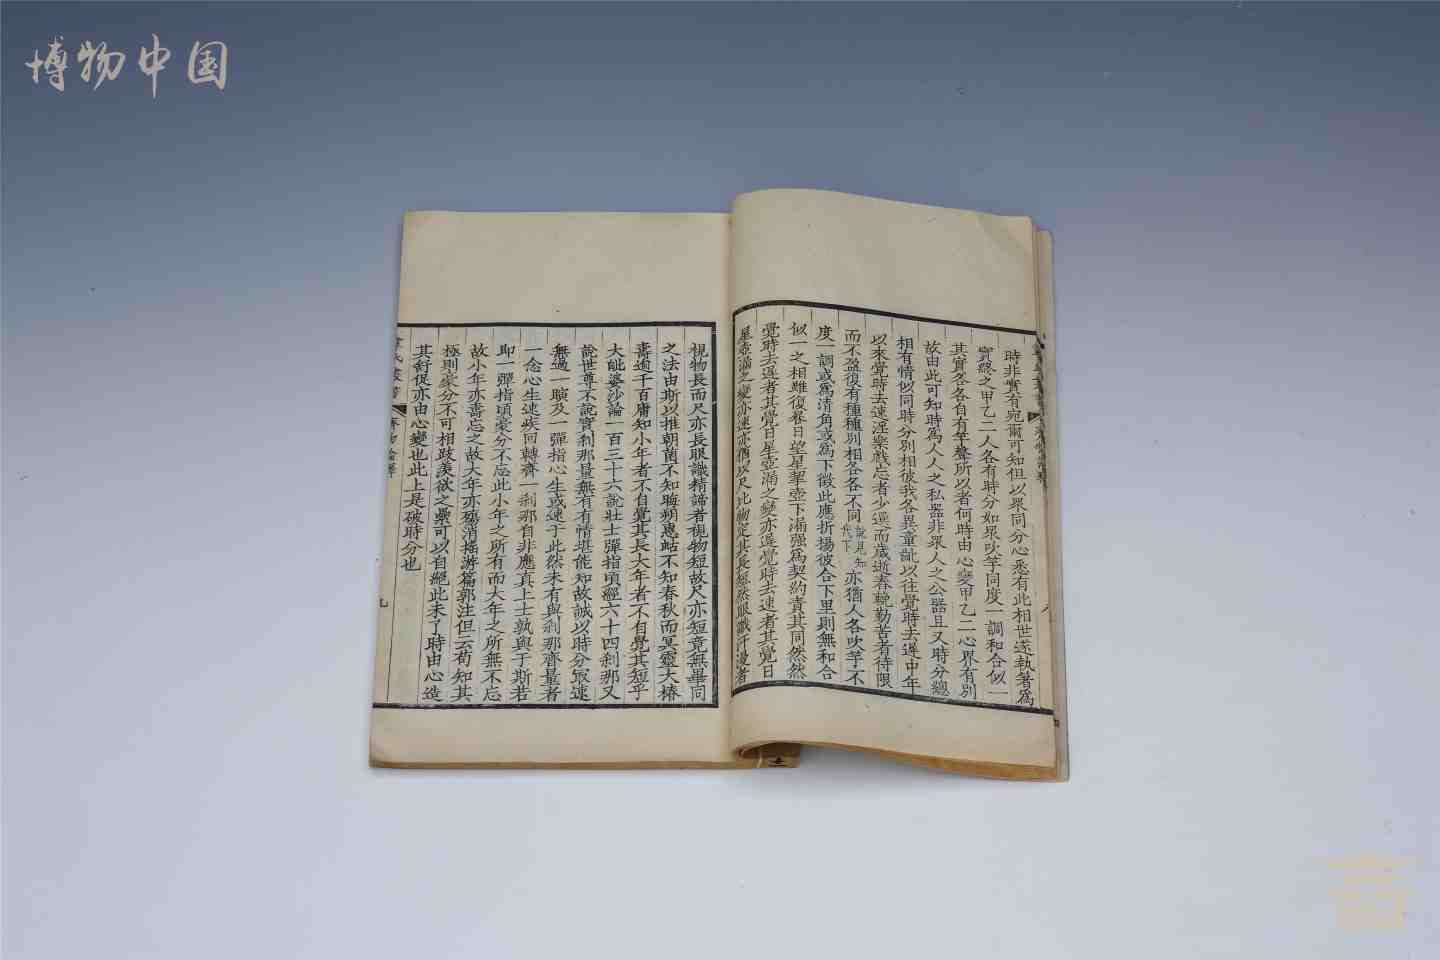 博物中国
時非實有宛爾可知但以眾同分心悉有此相世遂執著為
實終之甲乙二人各有時分如眾吹竽同度一調和合似一
其實各各自有竽聲所以者何時由心變甲乙二心界有別
故由此可知時為人人之私器非眾人之公器且又時分總
相有情似同時分別相彼我各異童齔以往覺時去遲中年
以來覺時去速淫樂戲忘者少選而歲逝春輓勤苦者待限
而不盈復有種種別相各各不同說見知代下亦猶人各吹竽不
度一調或為清角或為下徵此應折揚彼合下里則無和合
似一之相雖復卷日望星挈壺下漏强為契約責其同然然
覺時去遲者其覺日星壺漏之變亦遲覺時去速者其覺日
星壺漏之變亦速亦猶以尺比物定其長短然眼識汗漫者
視物長而尺亦長眼識精諦者視物短故尺亦短竟無畢同
之法由斯以推朝菌不知晦朔惠蛄不知春秋而冥靈大椿
壽逾千百庸知小年者不自覺其長大年者不自覺其短乎
大毗婆沙論一百三十六說壯士彈指頃經六十四刹那又
說世尊不說實刹那量無有有情堪能知故誠以時分最速
無過一瞚及一彈指心生或速于此然未有與刹那齊量者
一念心生速疾回轉齊一刹那自非應真上士孰與于斯若
即一彈指頃豪分不忘此小年之所有而大年之所無不忘
故小年亦壽忘之故大年亦殤消搖游篇郭注但云苟知其
極則豪分不可相跂羨欲之纍可以自絕此未了時由心造
其舒促亦由心變也此上是破時分也
章氏叢書
齊物論釋
九